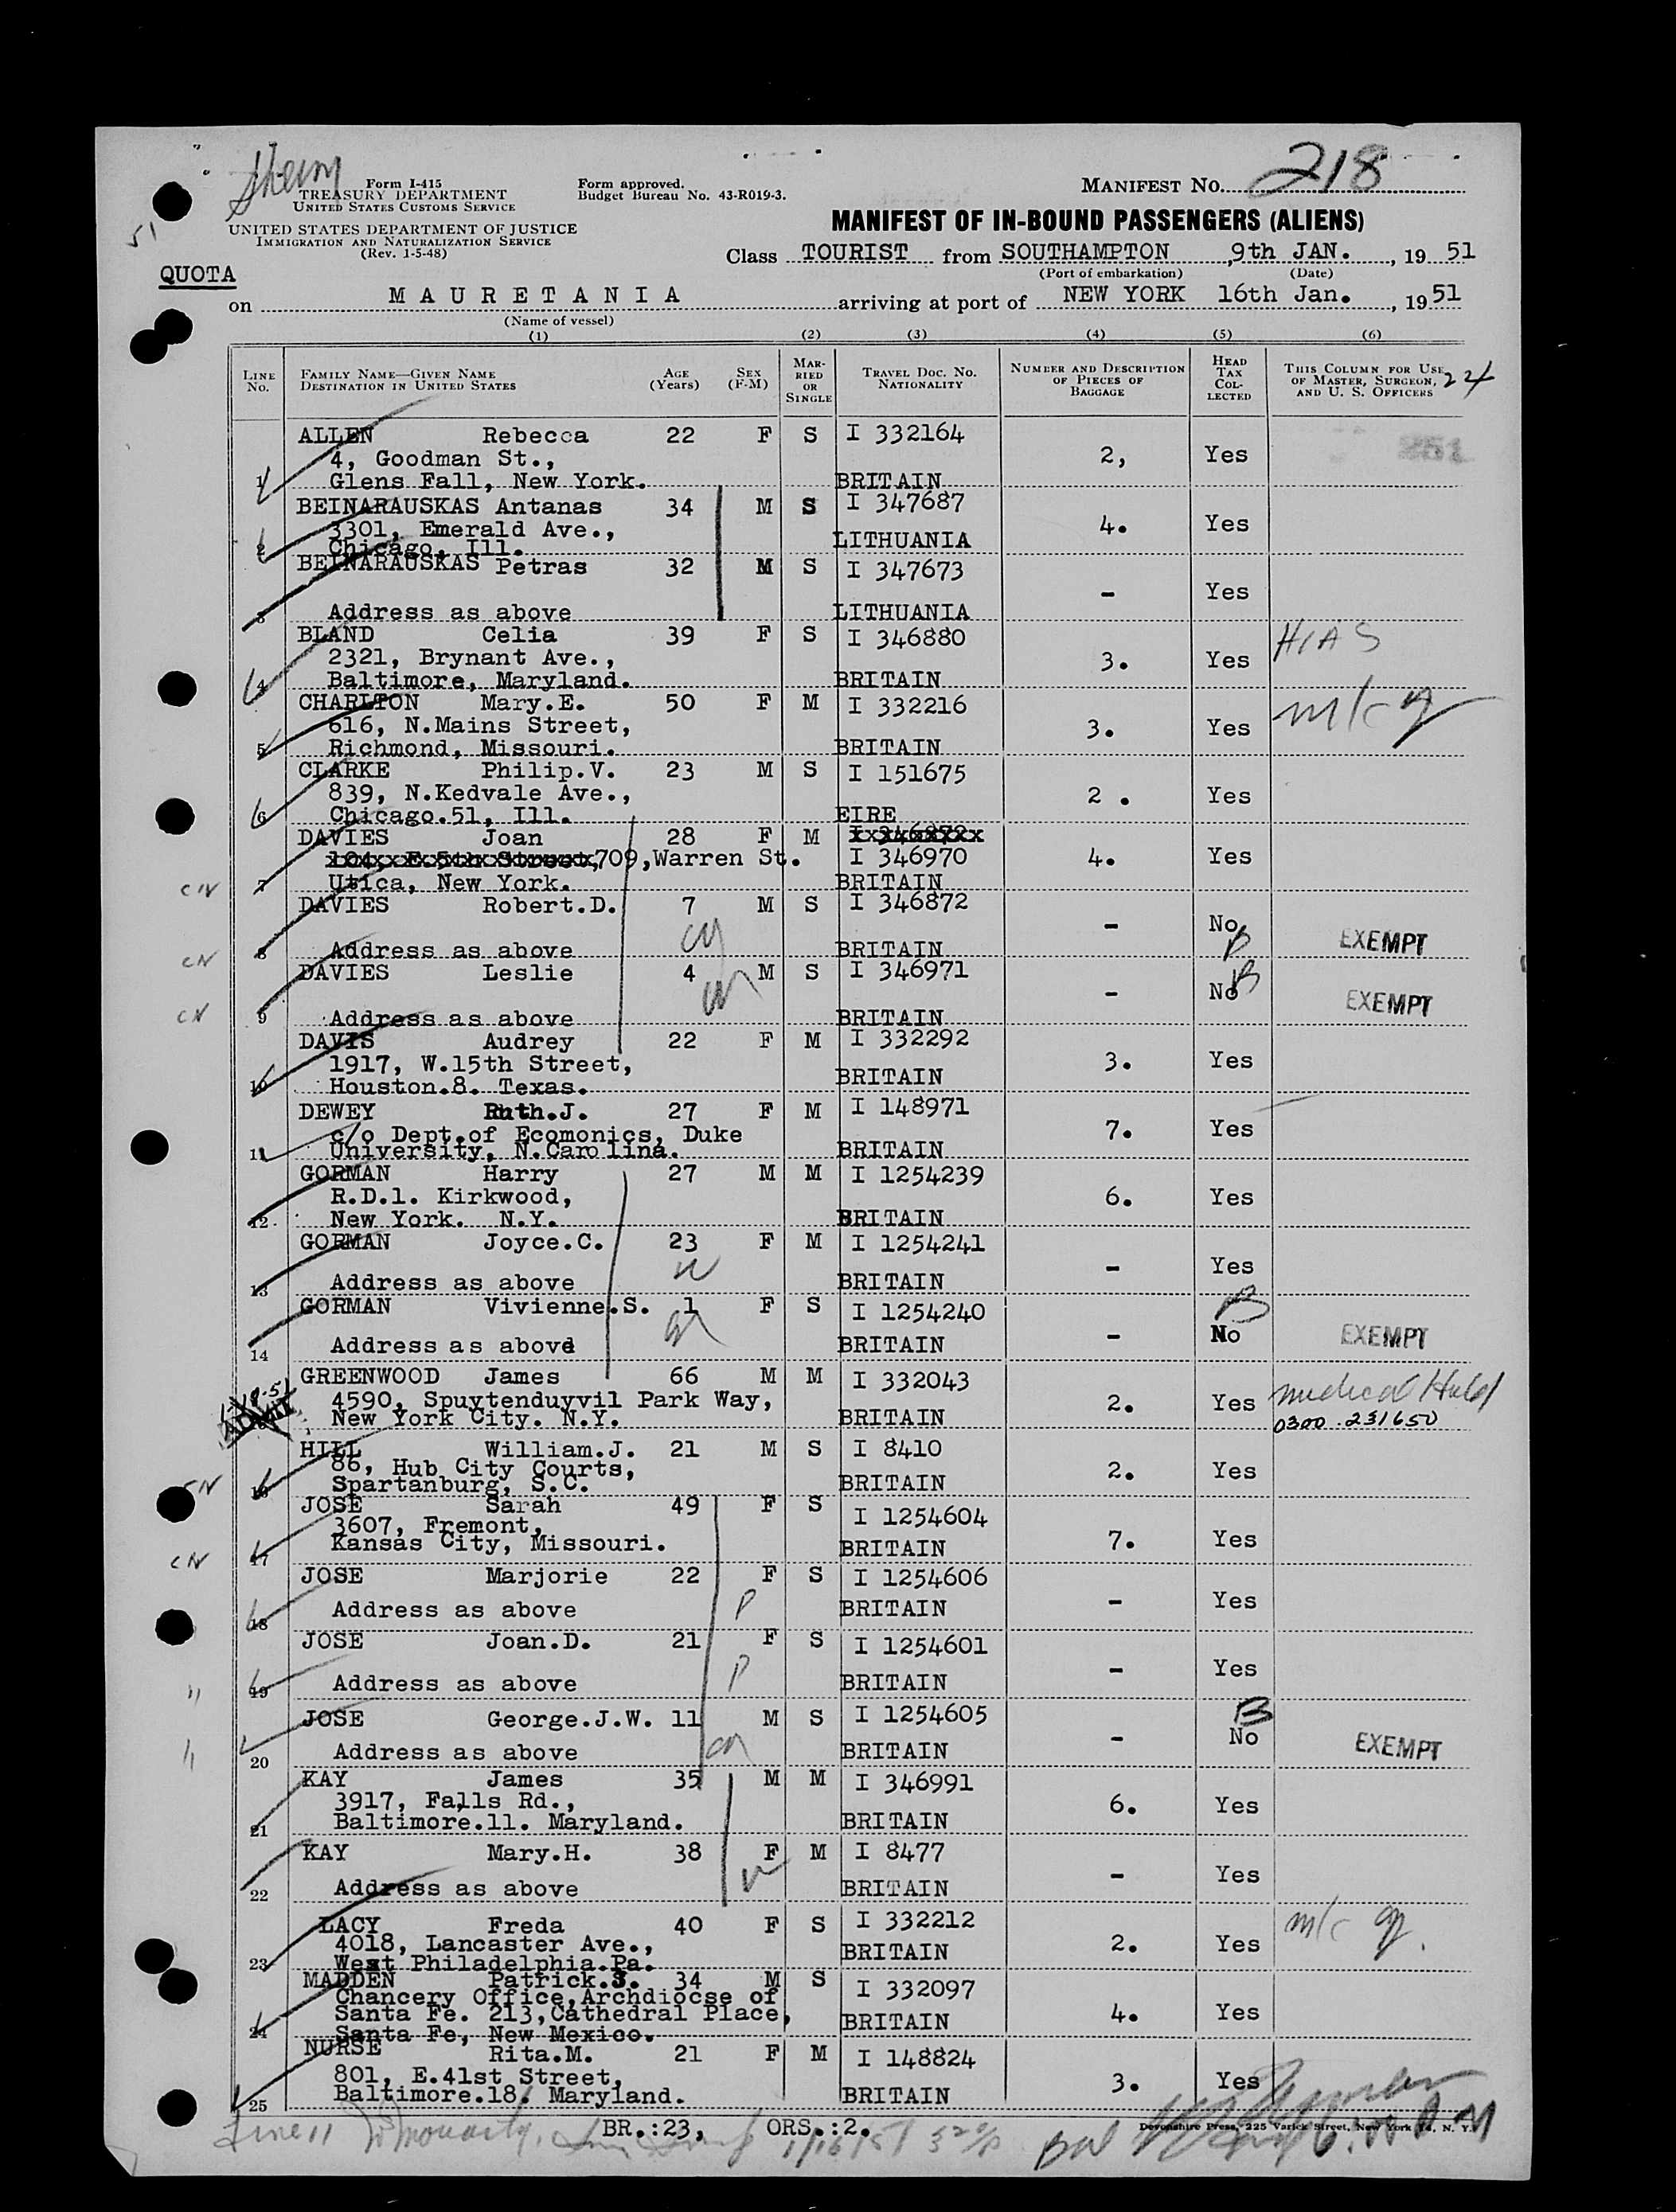 Form I-415
TREASURY DEPARTMENT
UNITED STATES CUSTOMS SERVICE
UNITED STATES DEPARTMENT OF JUSTICE
IMMIGRATION AND NATURALIZATION SERVICE
(Rev. 1-5-48)
Form approved.
Budget Bureau No. 43-R019-3.
MANIFEST NO. 218
MANIFEST OF IN-BOUND PASSENGERS (ALIENS)
51
Class TOURIST from SOUTHAMPTON, 9th JAN., 19 51
(Port of embarkation) (Date)
QUOTA
on MAURETANIA arriving at port of NEW YORK 16th Jan., 19 51
(Name of vessel)
(1) (2) (3) (4) (5) (6)
LINE NO. FAMILY NAME—GIVEN NAME DESTINATION IN UNITED STATES AGE (Years) SEX (F-M) MARRIED OR SINGLE TRAVEL DOC. NO. NATIONALITY NUMBER AND DESCRIPTION OF PIECES OF BAGGAGE HEAD TAX COLLECTED THIS COLUMN FOR USE OF MASTER, SURGEON, AND U. S. OFFICERS 24
ALLEN Rebecca 22 F S I 332164
4, Goodman St., 2, Yes 251
1 Glens Fall, New York. BRITAIN
BEINARAUSKAS Antanas 34 M S I 347687
3301, Emerald Ave., 4. Yes
2 Chicago, Ill. LITHUANIA
BEINARAUSKAS Petras 32 M S I 347673
- Yes
3 Address as above LITHUANIA
BLAND Celia 39 F S I 346880 HIAS
2321, Brynant Ave., 3. Yes
4 Baltimore, Maryland. BRITAIN
CHARLTON Mary.E. 50 F M I 332216 m/c
616, N.Mains Street, 3. Yes
5 Richmond, Missouri. BRITAIN
CLARKE Philip.V. 23 M S I 151675
839, N.Kedvale Ave., 2 . Yes
6 Chicago.51, Ill. EIRE
DAVIES Joan 28 F M
709,Warren St. I 346970 4. Yes
CN 7 Utica, New York. BRITAIN
DAVIES Robert.D. 7 M S I 346872
- No EXEMPT
CN 8 Address as above BRITAIN
DAVIES Leslie 4 M S I 346971
- No EXEMPT
CN 9 Address as above BRITAIN
DAVIS Audrey 22 F M I 332292
1917, W.15th Street, 3. Yes
10 Houston.8. Texas. BRITAIN
DEWEY Ruth.J. 27 F M I 148971
c/o Dept.of Ecomonics, Duke 7. Yes
11 University, N.Carolina. BRITAIN
GORMAN Harry 27 M M I 1254239
R.D.1. Kirkwood, 6. Yes
12 New York. N.Y. BRITAIN
GORMAN Joyce.C. 23 F M I 1254241
- Yes
13 Address as above BRITAIN
GORMAN Vivienne.S. 1 F S I 1254240
- No EXEMPT
14 Address as above BRITAIN
GREENWOOD James 66 M M I 332043
4590, Spuytenduyvil Park Way, 2. Yes medical Hold
ADMIT New York City. N.Y. BRITAIN 0300.231650
HILL William.J. 21 M S I 8410
86, Hub City Courts, 2. Yes
16 Spartanburg, S.C. BRITAIN
JOSE Sarah 49 F S I 1254604
3607, Fremont, 7. Yes
CN 17 Kansas City, Missouri. BRITAIN
JOSE Marjorie 22 F S I 1254606
- Yes
18 Address as above BRITAIN
JOSE Joan.D. 21 F S I 1254601
- Yes
" 19 Address as above BRITAIN
JOSE George.J.W. 11 M S I 1254605
- No EXEMPT
" 20 Address as above BRITAIN
KAY James 35 M M I 346991
3917, Falls Rd., 6. Yes
21 Baltimore.11. Maryland. BRITAIN
KAY Mary.H. 38 F M I 8477
- Yes
22 Address as above BRITAIN
LACY Freda 40 F S I 332212 m/c
4018, Lancaster Ave., 2. Yes
23 West Philadelphia.Pa. BRITAIN
MADDEN Patrick.S. 34 M S I 332097
Chancery Office,Archdiocse of
Santa Fe. 213,Cathedral Place, 4. Yes
24 Santa Fe, New Mexico. BRITAIN
NURSE Rita.M. 21 F M I 148824
801, E.41st Street, 3. Yes
25 Baltimore.18. Maryland. BRITAIN
BR.:23, ORS.:2.
Devonshire Press, 225 Varick Street, New York 14, N. Y.